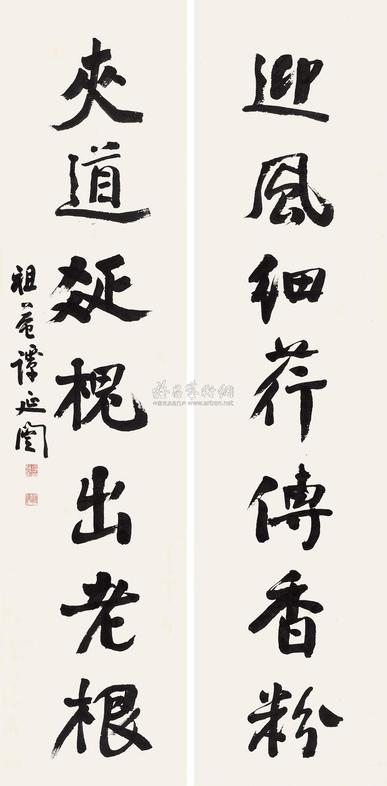 迎風細荇傳香粉
夾道疏槐出老根
祖菴譚延闓
雅昌藝術網
www.artron.net